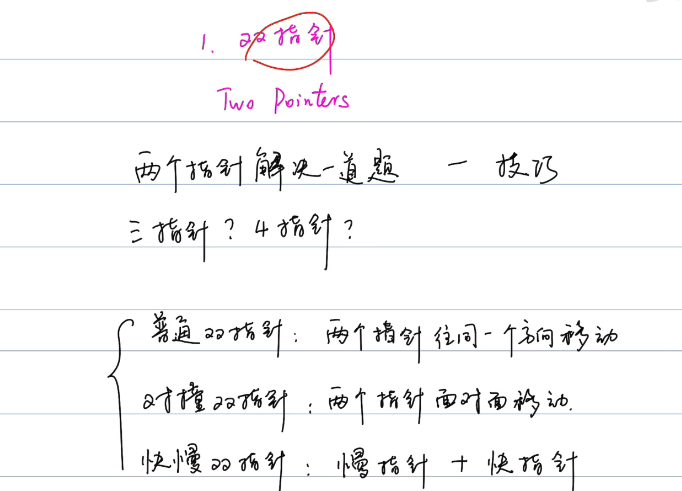 1. 双指针
Two Pointers
两个指针解决一道题 — 技巧
三指针? 4指针?
普通双指针: 两个指针往同一个方向移动
对撞双指针: 两个指针面对面移动.
快慢双指针: 慢指针 + 快指针